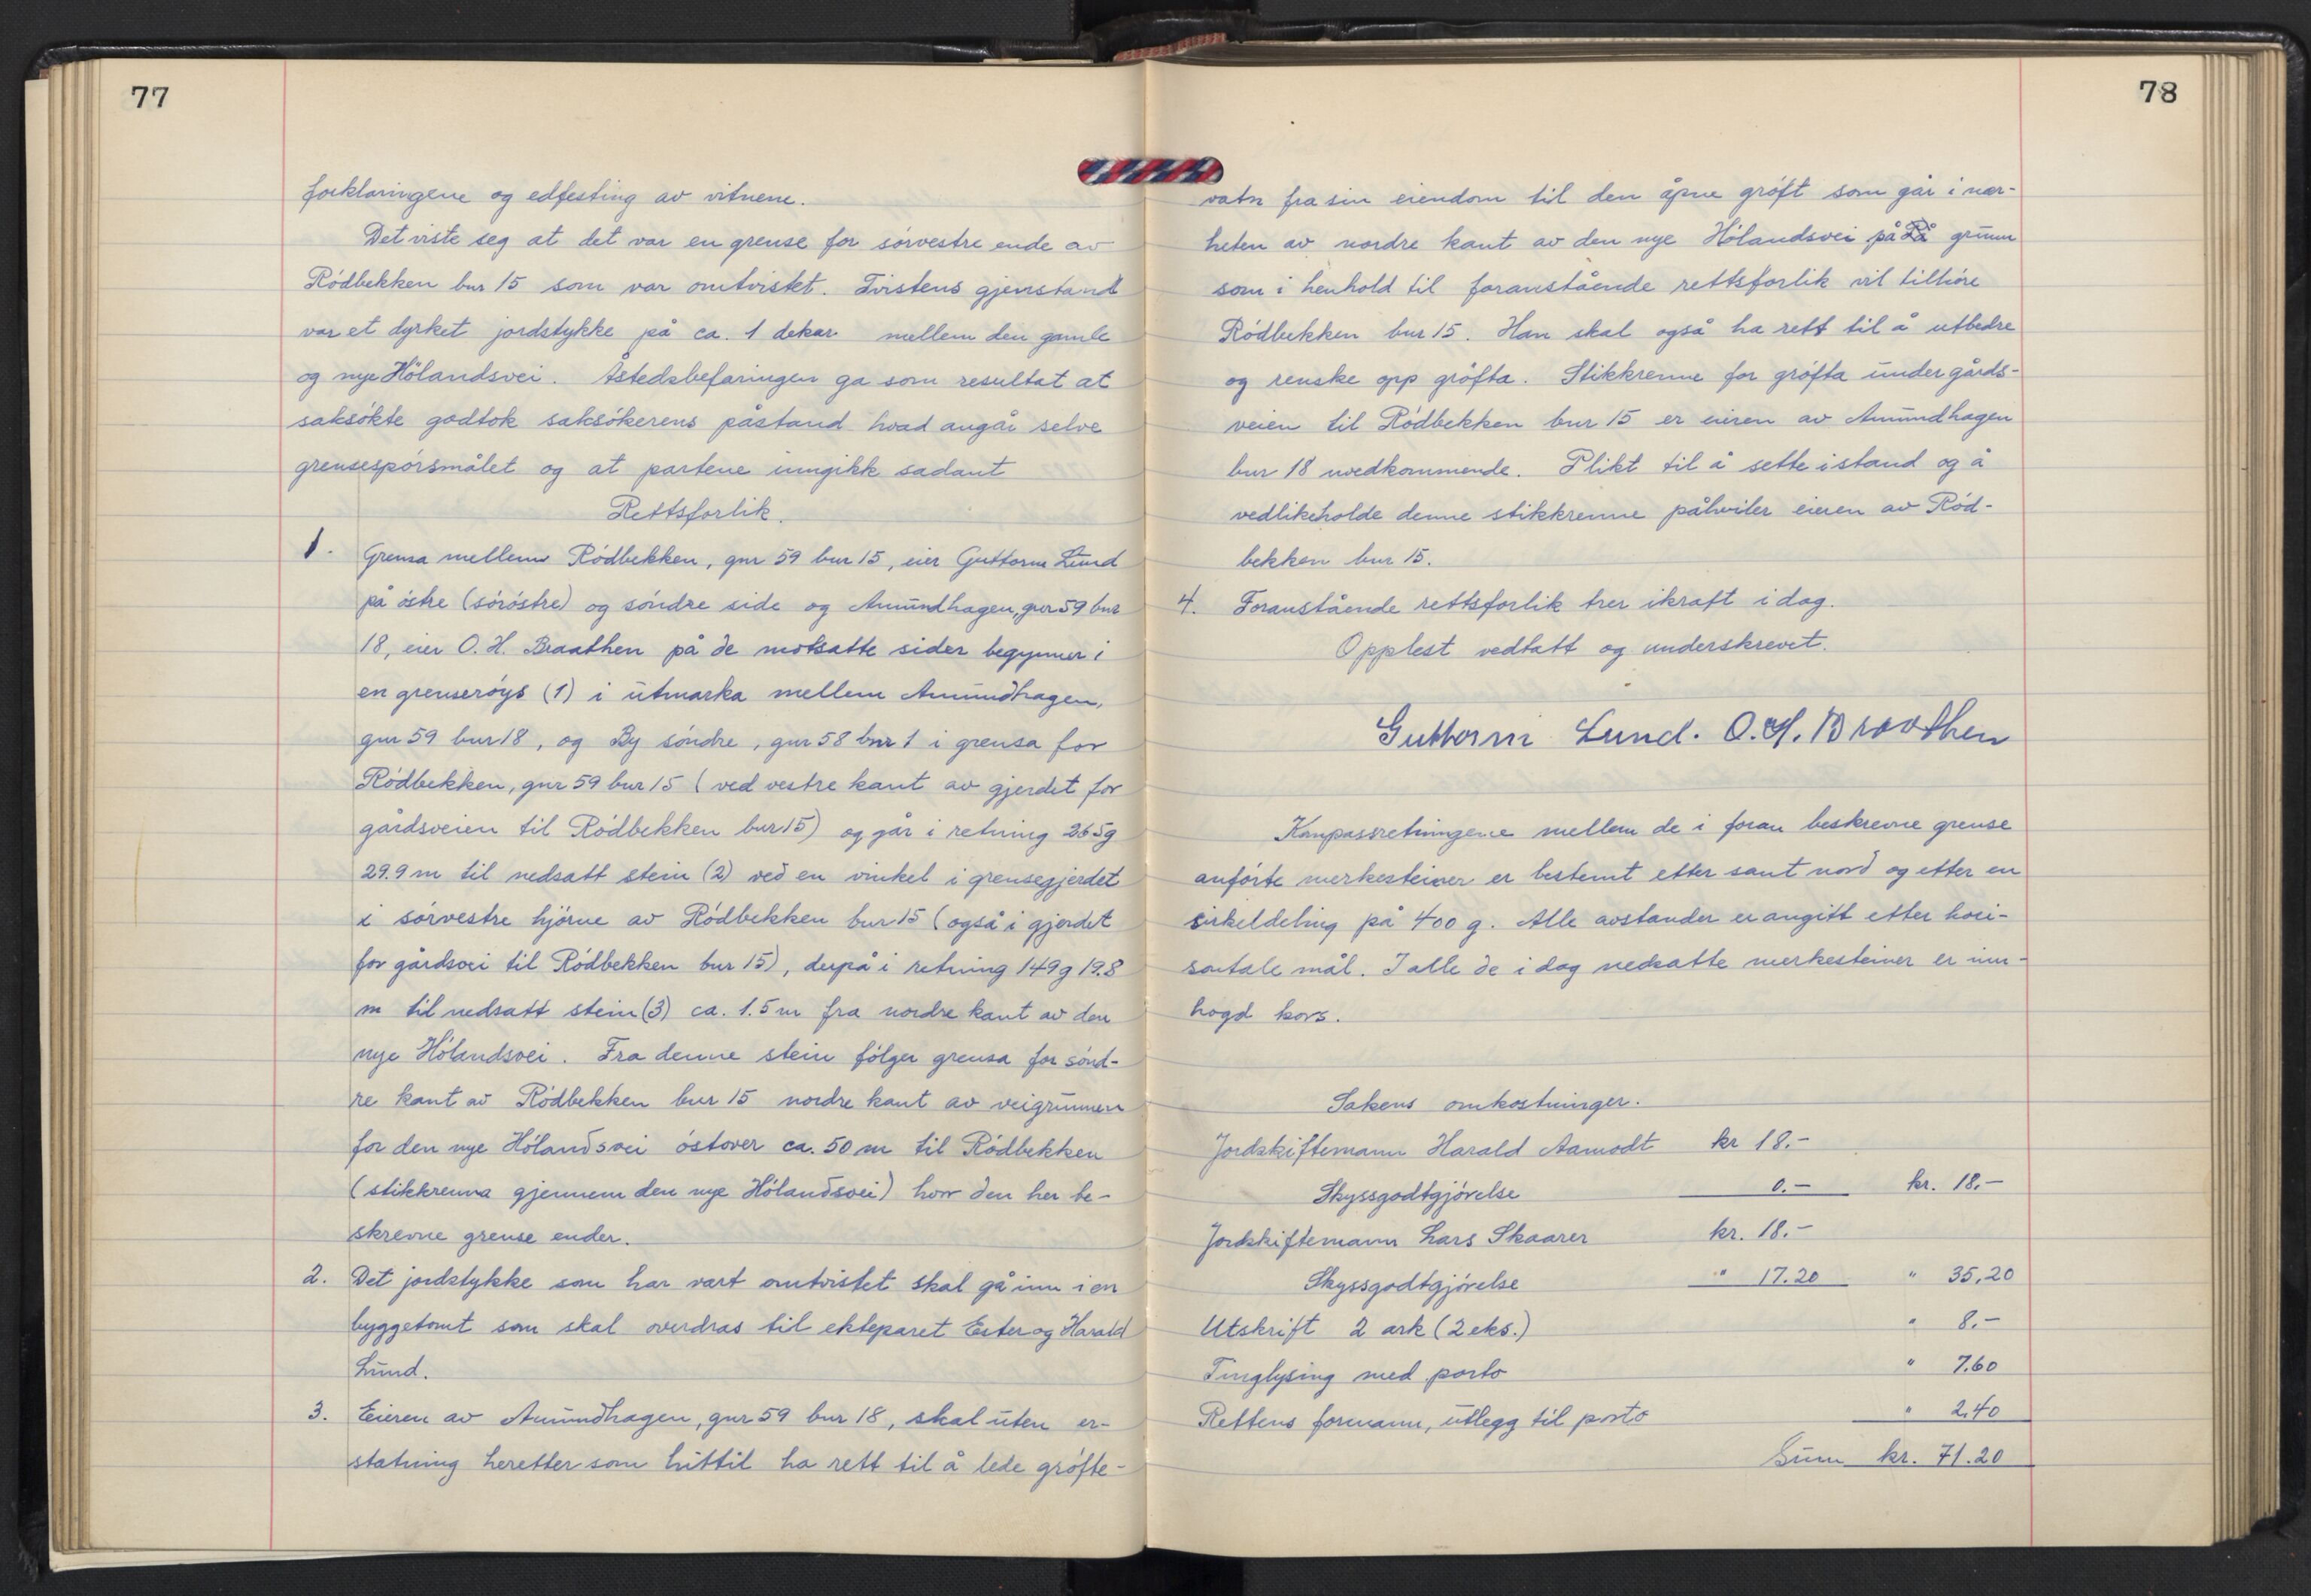 77
forklaringene og edfesting av vitnene.
Det viste seg at det var en grense for sörvestre ende av
Rödbekken bnr 15 som var omtvistet. Tvistens gjenstand
var et dyrket jordstykke på ca. 1 dekar mellem den gamle
og nye Hölandsvei. Åstedsbefaringen ga som resultat at
saksökte godtok saksökerens påstand hvad angår selve
grensespörsmålet og at partene inngikk sådant
Rettsforlik.
1. Grensa mellem Rödbekken, gnr 59 bnr 15, eier Guttorm Lund
på östre (söröstre) og söndre side og Amundhagen, gnr 59 bnr
18, eier O. H. Braathen på de motsatte sider begynner i
en grenseröys (1) i utmarka mellem Amundhagen,
gnr 59 bnr 18, og By söndre, gnr 58 bnr 1 i grensa for
Rödbekken, gnr 59 bnr 15 (ved vestre kant av gjerdet for
gårdsveien til Rödbekken bnr 15) og går i retning 265g
29.9 m til nedsatt stein (2) ved en vinkel i grensegjerdet
i sörvestre hjörne av Rödbekken bnr 15 (også i gjerdet
for gårdsvei til Rödbekken bnr 15), derpå i retning 149g 19.8
m til nedsatt stein (3) ca. 1.5 m fra nordre kant av den
nye Hölandsvei. Fra denne stein fölger grensa for sönd-
re kant av Rödbekken bnr 15 nordre kant av veigrunnen
for den nye Hölandsvei östover ca. 50 m til Rödbekken
(stikkrenna gjennem den nye Hölandsvei) hvor den her be-
skrevne grense ender.
2. Det jordstykke som har vært omtvistet skal gå inn i en
byggetomt som skal overdras til ekteparet Ester og Harald
Lund.
3. Eieren av Amundhagen, gnr 59 bnr 18, skal uten er-
statning heretter som hittil ha rett til å lede gröfte-
78
vatn fra sin eiendom til den åpne gröft som går i nær-
heten av nordre kant av den nye Hölandsvei på grunn
som i henhold til foranstående rettsforlik vil tilhöre
Rödbekken bnr 15. Han skal også ha rett til å utbedre
og renske opp gröfta. Stikkrenne for gröfta under gårds-
veien til Rödbekken bnr 15 er eieren av Amundhagen
bnr 18 uvedkommende. Plikt til å sette istand og å
vedlikeholde denne stikkrenne påhviler eieren av Röd-
bekken bnr 15.
4. Foranstående rettsforlik trer ikraft i dag.
Opplest vedtatt og underskrevet.
Guttorm Lund. O. H. Braathen
Kompassretningene mellem de i foran beskrevne grense
anförte merkesteiner er bestemt etter sant nord og etter en
sirkeldeling på 400 g. Alle avstander er angitt etter hori-
sontale mål. I alle de i dag nedsatte merkesteiner er inn-
hogd kors.
Sakens omkostninger.
Jordskiftemann Harald Aamodt kr 18.-
Skyssgodtgjörelse 0.- kr. 18.-
Jordskiftemann Lars Skaarer kr. 18.-
Skyssgodtgjörelse " 17.20 " 35,20
Utskrift 2 ark (2 eks.) " 8.-
Tinglysing med porto " 7.60
Rettens formann, utlegg til porto " 2.40
Sum kr. 71.20